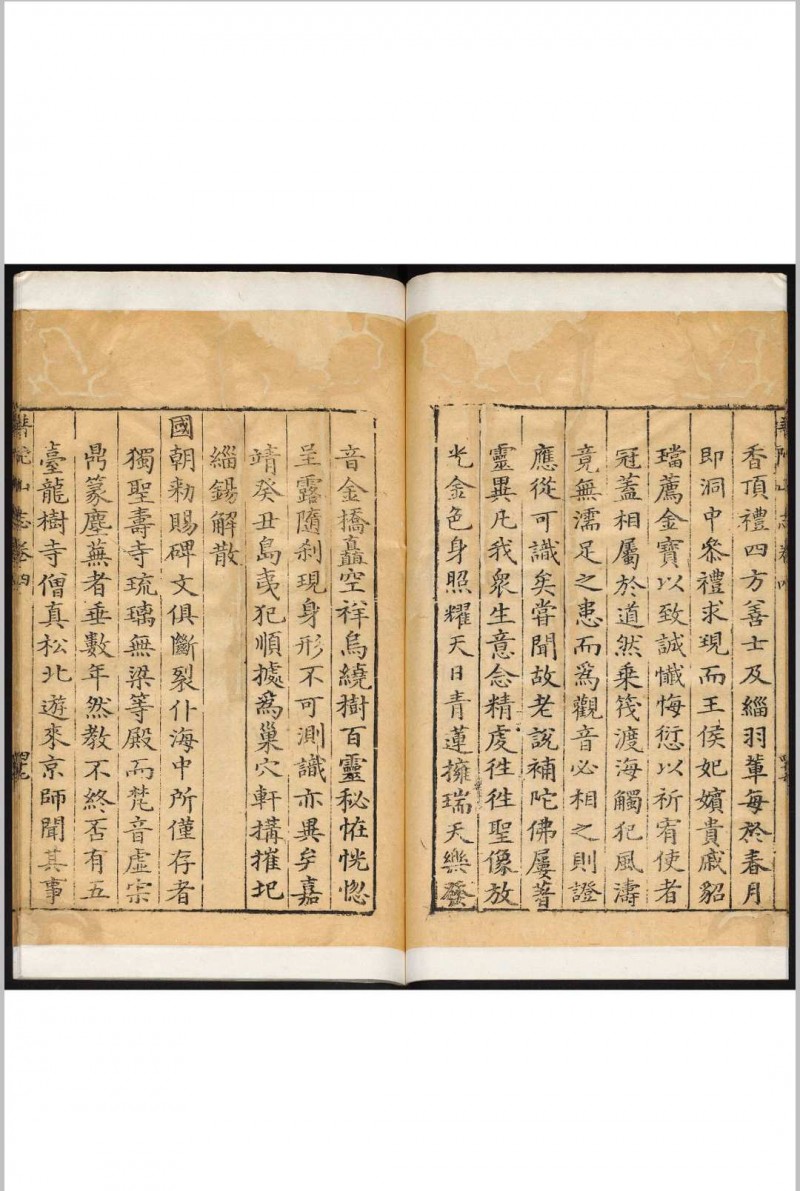 香頂禮四方善士及緇羽軰每於春月
即洞中叅禮求現而王侯妃嬪貴戚貂
璫薦金寶以致誠懺悔愆以祈宥使者
冠蓋相屬於道然乗筏渡海觸犯風濤
竟無濡足之患而爲觀音必相之則證
應從可識矣甞聞故老說補陀佛屢著
靈異凡我衆生意念精虔徃徃聖像放
光金色身照耀天日青蓮擁瑞天樂發
音金橋矗空祥烏繞樹百靈秘恠恍惚
呈露隨刹現身形不可測識亦異矣嘉
靖癸丑島夷犯順據爲巢穴軒搆摧圮
緇錫解散
國朝勑賜碑文俱斷裂仆海中所僅存者
獨聖壽寺琉璃無梁等殿而梵音虛宗
鼎篆塵蕪者垂數年然教不終否有五
臺龍樹寺僧真松北遊來京師聞其事
普陀山志卷四